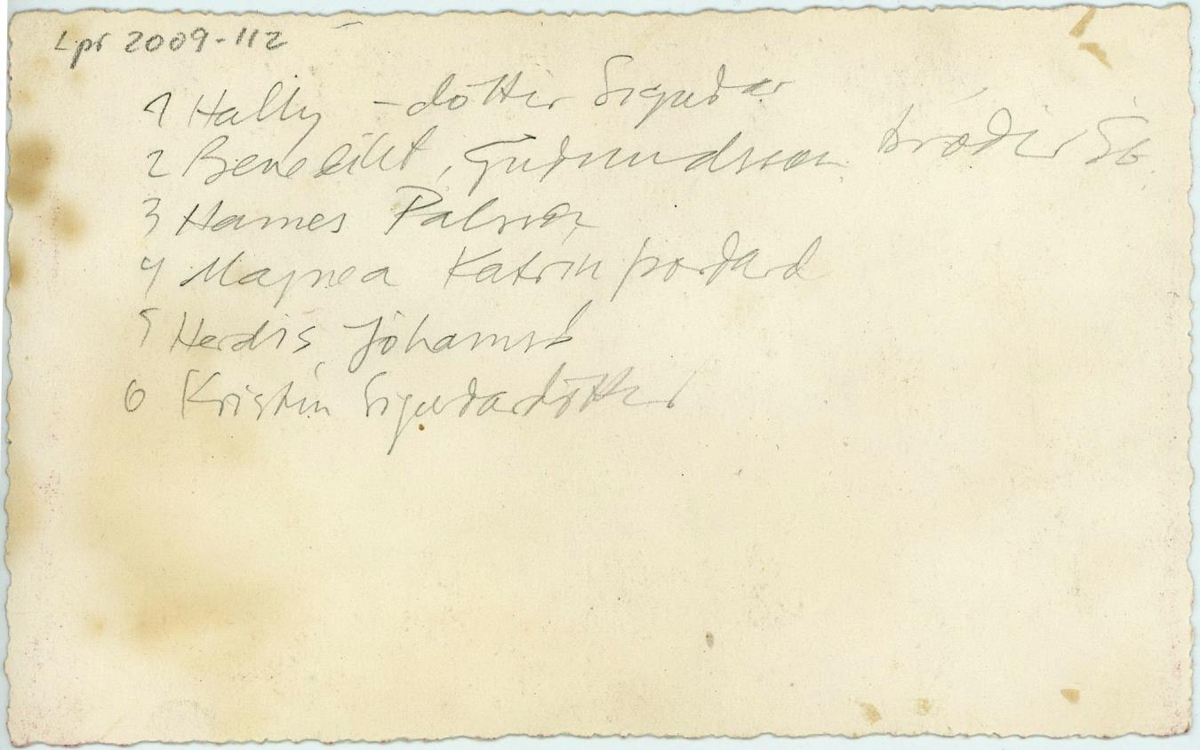 Lpr 2009-112
1 Hally - dóttir Sigurðar
2 Benedikt Guðmundsson bróðir SG
3 Hannes Pálsson
4 Magnea Katrín Þórðard
5 Herdís Jóhannsd
6 Kristín Sigurðardóttir